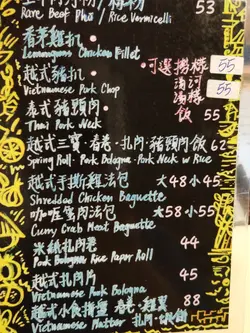 Rare Beef Phở / Rice Vermicelli 53
香茅雞扒
Lemongrass Chicken Fillet
可選撈檬 55
湯河
湯檬 55
飯 55
越式豬扒
Vietnamese Pork Chop
泰式豬頸肉
Thai Pork Neck
越式三寶・春卷・扎肉・豬頸肉飯 62
Spring Roll · Pork Bologna · Pork Neck w Rice
越式手撕雞法包 大48小45
Shredded Chicken Baguette
咖喱蟹肉法包 大58小55
Curry Crab Meat Baguette
米紙扎肉卷 44
Pork Bologna Rice Paper Roll
越式扎肉片 45
Vietnamese Pork Bologna
越式小食拼盤 春卷・雞翼 88
Vietnamese Platter 扎肉